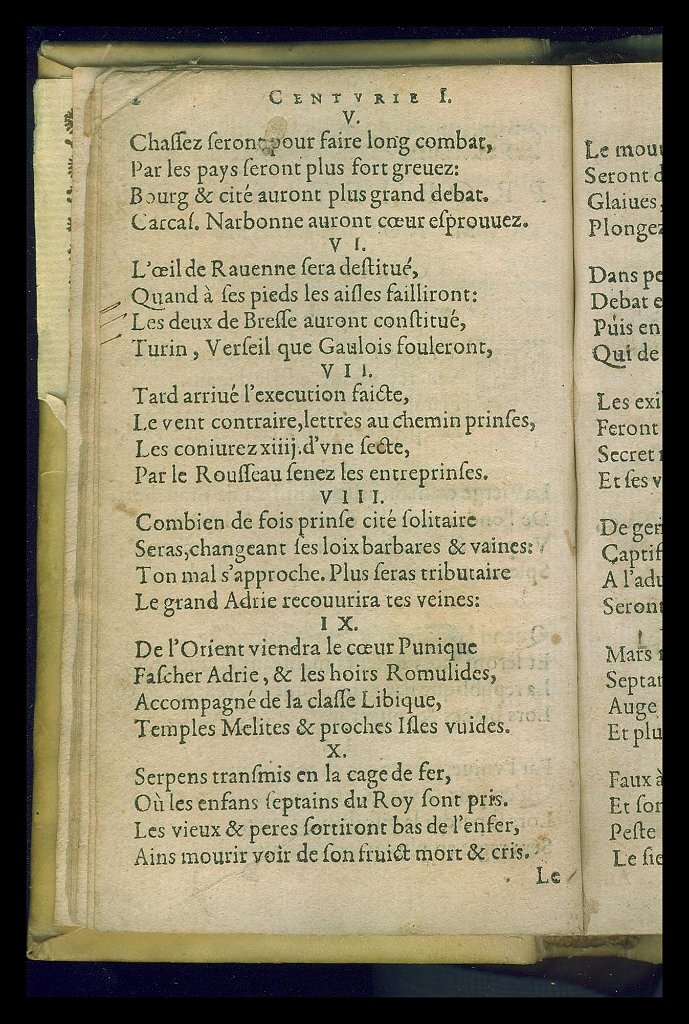 CENTVRIE I.
V.
Chaſſez ſeront pour faire long combat,
Par les pays ſeront plus fort greuez:
Bourg & cité auront plus grand debat.
Carcaſ. Narbonne auront cœur eſprouuez.
VI.
L'œil de Rauenne ſera deſtitué,
Quand à ſes pieds les aiſles failliront:
Les deux de Breſſe auront conſtitué,
Turin, Verſeil que Gaulois fouleront,
VII.
Tard arriué l'execution faicte,
Le vent contraire, lettres au chemin prinſes,
Les coniurez xiiij. d'vne ſecte,
Par le Rouſſeau ſenez les entreprinſes.
VIII.
Combien de fois prinſe cité ſolitaire
Seras, changeant ſes loix barbares & vaines:
Ton mal s'approche. Plus ſeras tributaire
Le grand Adrie recouurira tes veines:
IX.
De l'Orient viendra le cœur Punique
Faſcher Adrie, & les hoirs Romulides,
Accompagné de la claſſe Libique,
Temples Melites & proches Iſles vuides.
X.
Serpens tranſmis en la cage de fer,
Où les enfans ſeptains du Roy ſont pris.
Les vieux & peres ſortiront bas de l'enfer,
Ains mourir voir de ſon fruict mort & cris.
Le
Le mou
Seront d
Glaiues,
Plongez
Dans pe
Debat e
Puis en
Qui de
Les exi
Feront
Secret
Et ſes v
De gen
Captif
A l'adu
Seront
Mars
Septan
Auge
Et plu
Faux à
Et ſor
Peſte
Le ſie